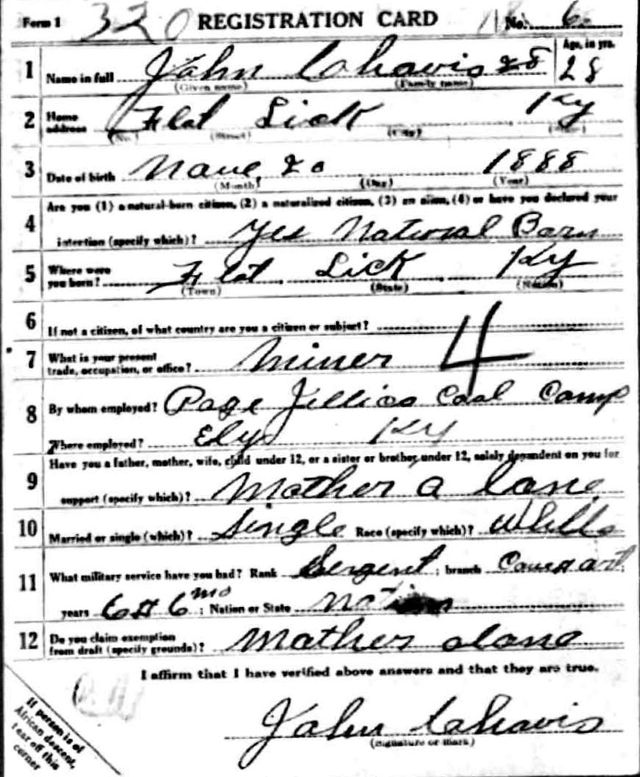 Form 1 320 REGISTRATION CARD No. 6
1 Name in full John Cohavis 28 Age, in yrs. 28
(Given name) (Family name)
2 Home address Flat Lick Ky
(No.) (Street) (City) (State)
3 Date of birth Nove, 20 1888
(Month) (Day) (Year)
4 Are you (1) a natural-born citizen, (2) a naturalized citizen, (3) an alien, (4) or have you declared your
intention (specify which)? Yes Natural Born
5 Where were you born? Flat Lick Ky
(Town) (State) (Nation)
6 If not a citizen, of what country are you a citizen or subject?
7 What is your present trade, occupation, or office? Miner 4
8 By whom employed? Page Jellico Coal Camp
Where employed? Elys Ky
9 Have you a father, mother, wife, child under 12, or a sister or brother under 12, solely dependent on you for
support (specify which)? Mother a lone
10 Married or single (which)? Single Race (specify which)? White
11 What military service have you had? Rank Sergent; branch
years 6; Nation or State
12 Do you claim exemption from draft (specify grounds)? Mother alone
I affirm that I have verified above answers and that they are true.
John Cohavis
(Signature or mark)
If person is of
African descent,
tear off this
corner